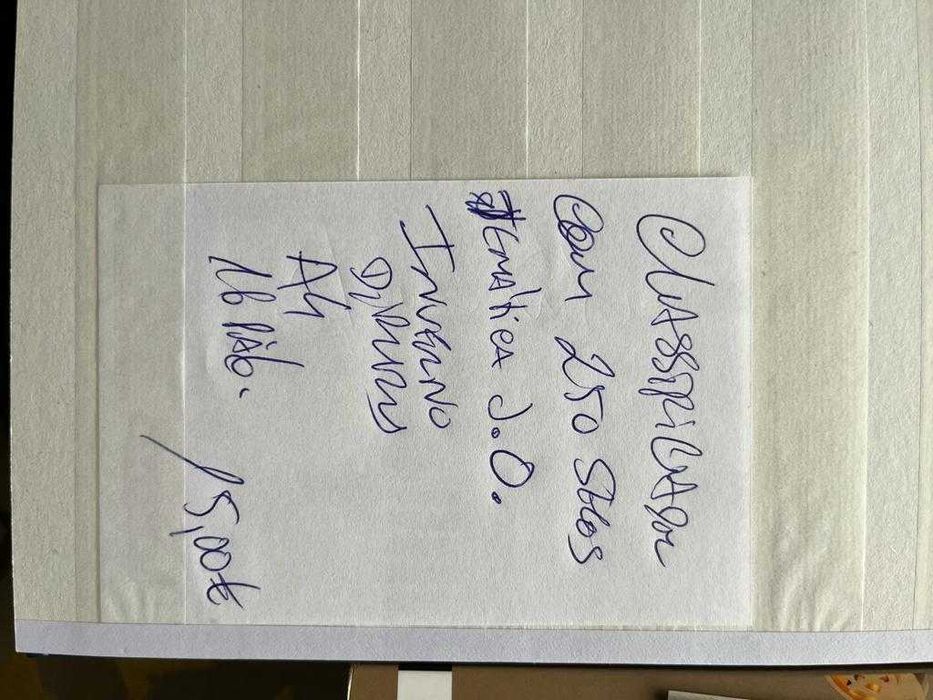 Classificador
com 250 Selos
temática J.O.
Inverno
Diversos
A4
16 Pág.
15,00€